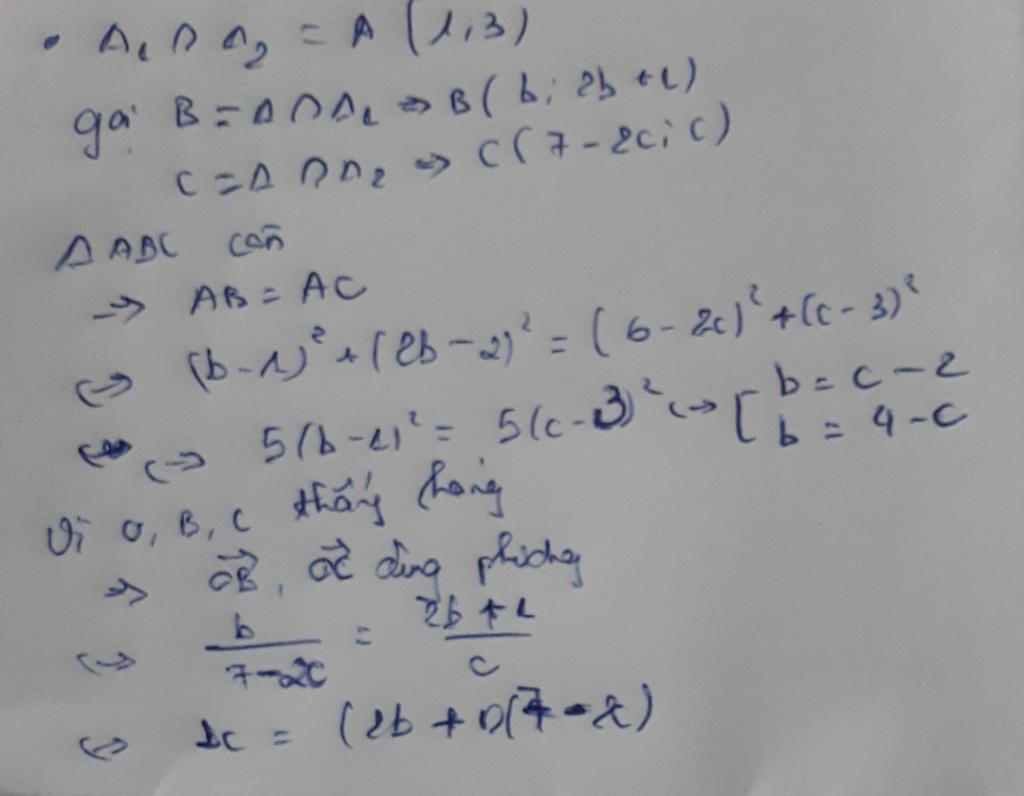 • Δ₁ ∩ Δ₂ = A (1,3)
gọi B = Δ ∩ Δ₁ => B( b; 2b + 1)
C = Δ ∩ Δ₂ => C( 7 - 2c; c)
Δ ABC cân
=> AB = AC
<=> (b - 1)² + (2b - 2)² = ( 6 - 2c)² + (c - 3)²
<=> 5(b - 1)² = 5(c - 3)² <=> [ b = c - 2
b = 4 - c
Vì O, B, C thẳng hàng
=> OB→, OC→ cùng phương
<=> b / (7 - 2c) = (2b + 1) / c
<=> bc = (2b + 1)(7 - 2c)